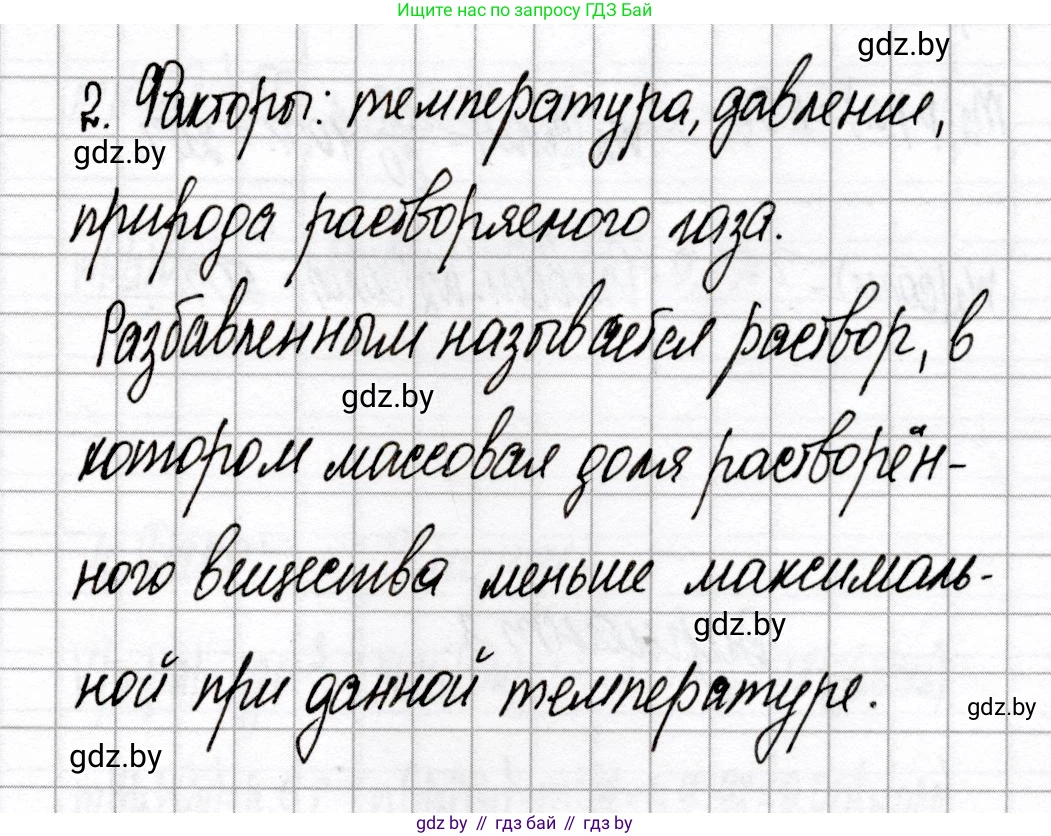 Ищите нас по запросу ГДЗ Бай
gdz.by
2. Факторы: температура, давление,
gdz.by
природа растворяемого газа.
Разбавленным называется раствор, в
gdz.by
котором массовая доля растворён-
ного вещества меньше максималь-
gdz.by
ной при данной температуре.
gdz.by
gdz.by
gdz by // гдз бай // гдз by